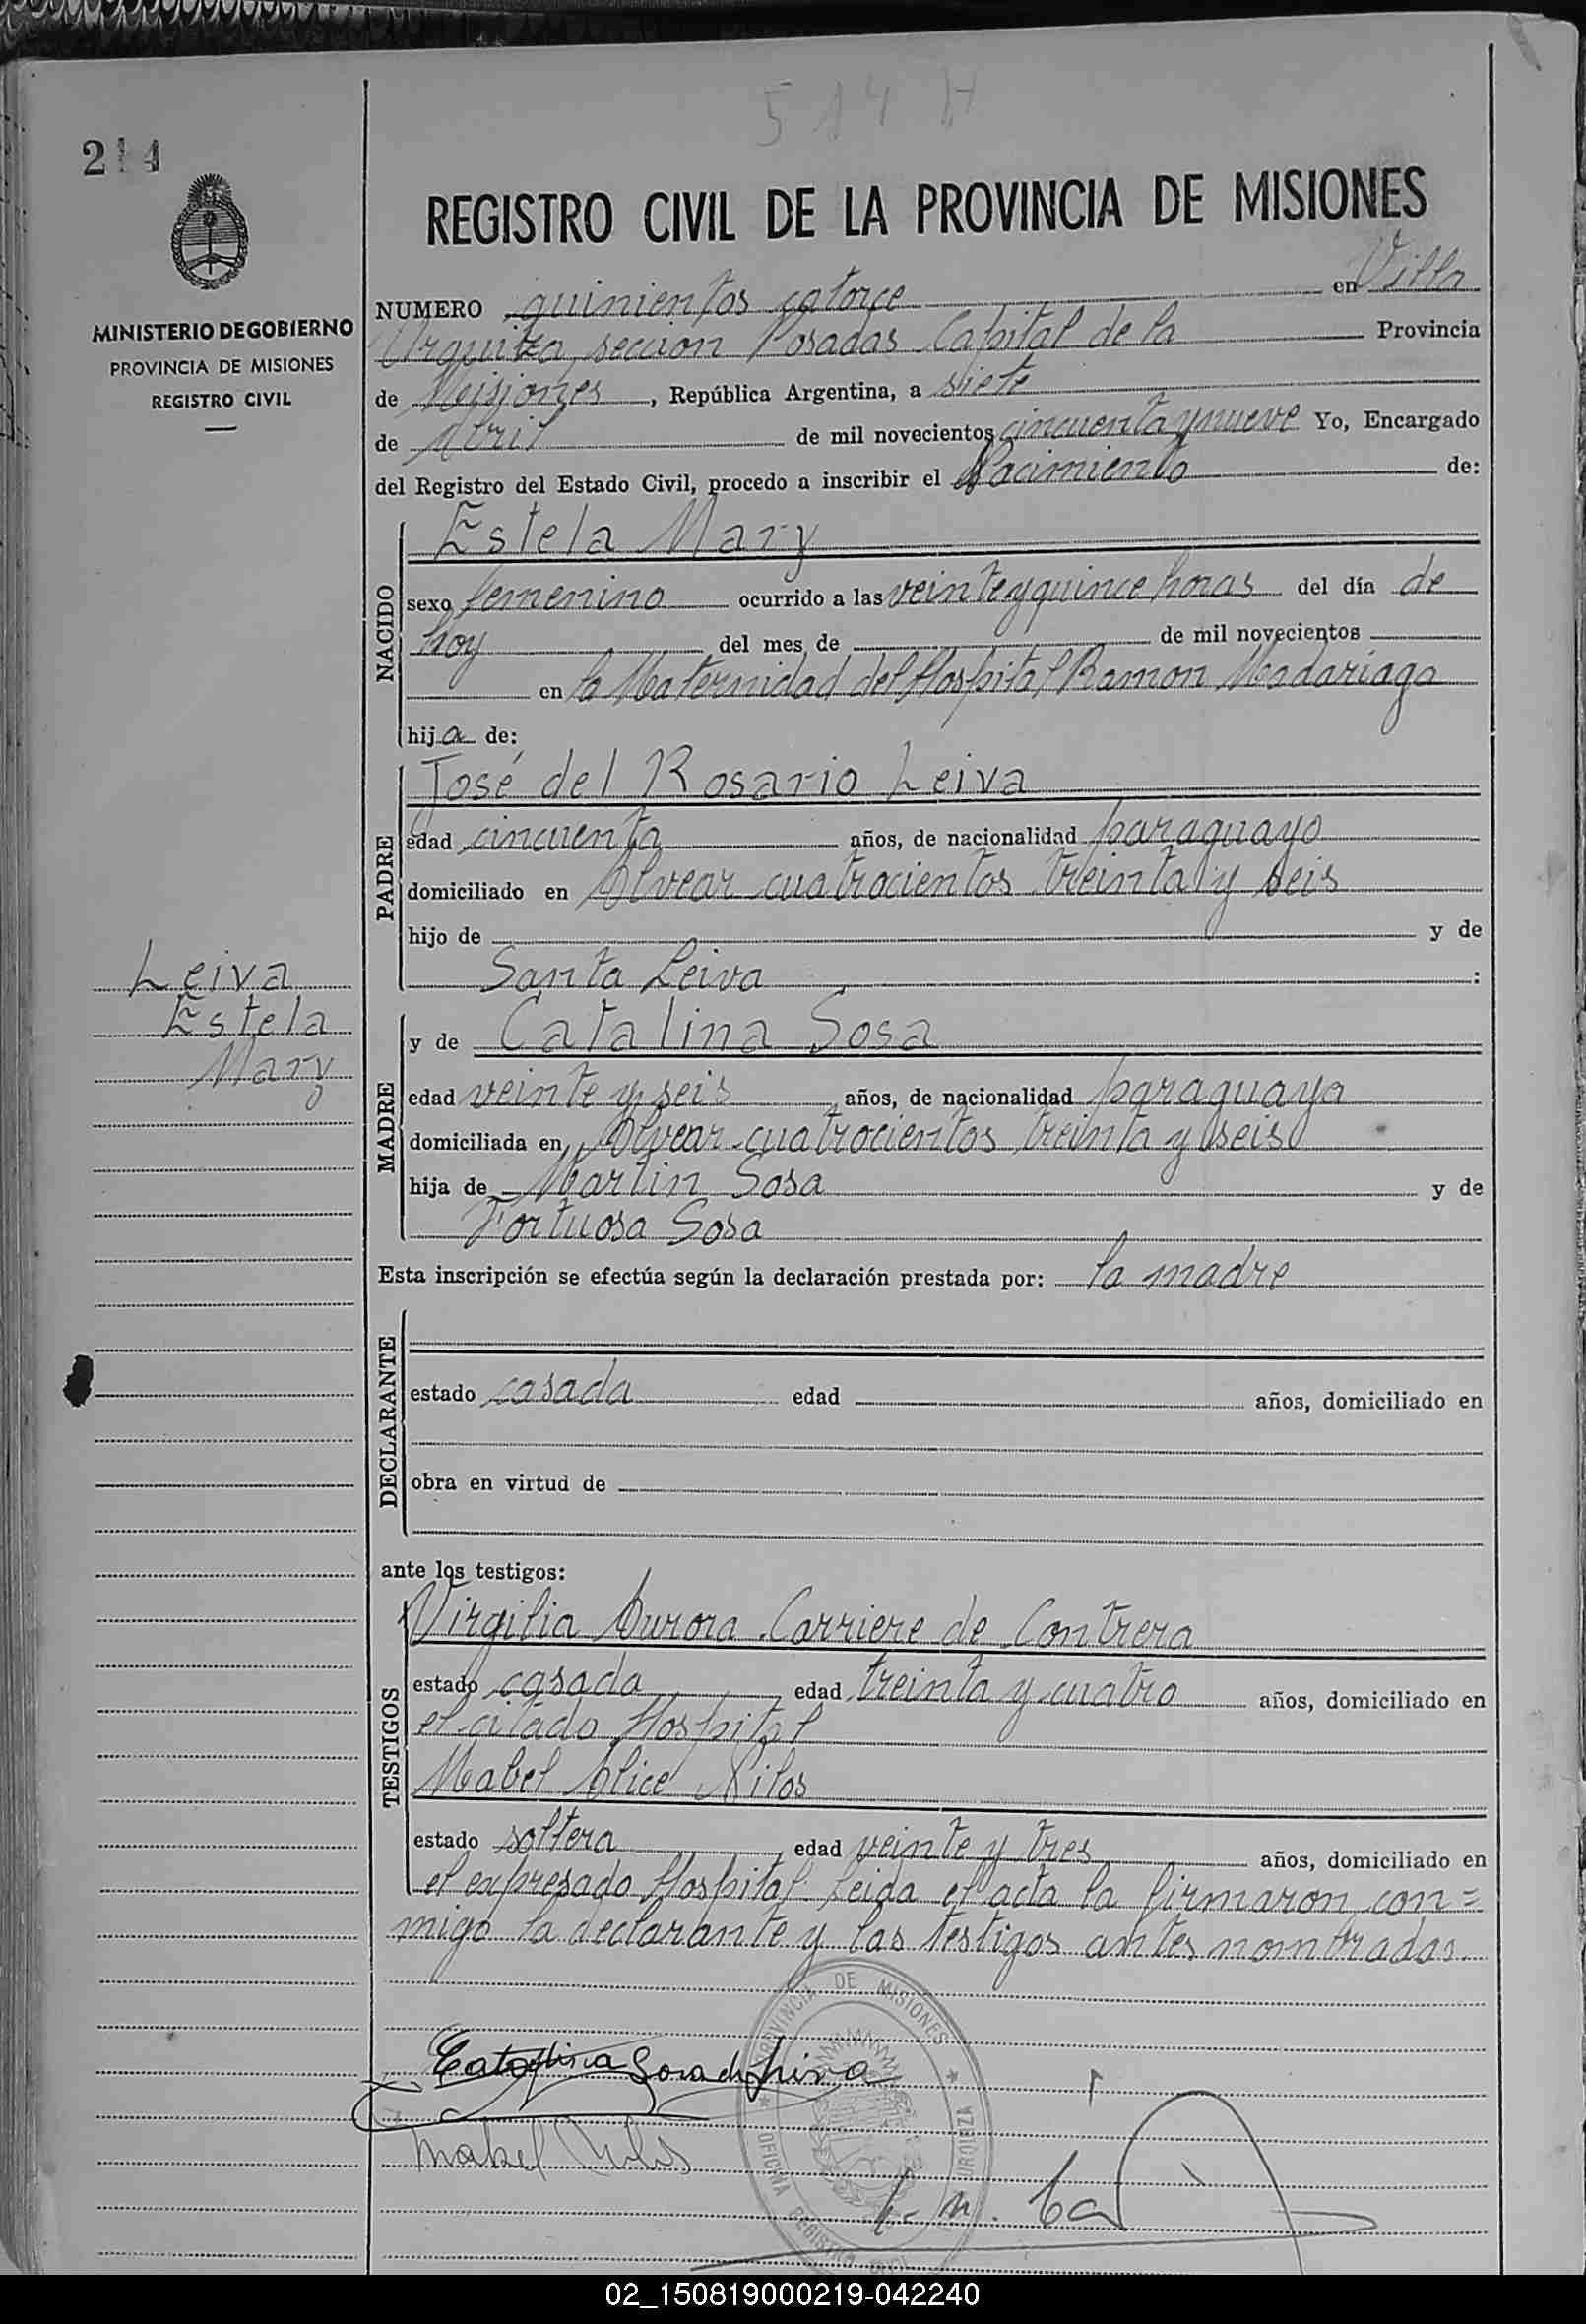 514 H
214
REGISTRO CIVIL DE LA PROVINCIA DE MISIONES
MINISTERIO DE GOBIERNO
PROVINCIA DE MISIONES
REGISTRO CIVIL
NUMERO quinientos catorce en Villa
Urquiza, sección Posadas Capital de la Provincia
de Misiones, República Argentina, a siete
de Abril de mil novecientos cincuenta y nueve Yo, Encargado
del Registro del Estado Civil, procedo a inscribir el Nacimiento de:
NACIDO
Estela Mary
sexo femenino ocurrido a las veinte y quince horas del día de
hoy del mes de de mil novecientos
en la Maternidad del Hospital Ramon Madariaga
hija de:
PADRE
José del Rosario Leiva
edad cincuenta años, de nacionalidad paraguayo
domiciliado en Alvear cuatrocientos treinta y seis
hijo de y de
Santa Leiva :
Leiva
Estela
Mary
MADRE
y de Catalina Sosa
edad veinte y seis años, de nacionalidad paraguaya
domiciliada en Alvear cuatrocientos treinta y seis
hija de Martin Sosa y de
Fortuosa Sosa
Esta inscripción se efectúa según la declaración prestada por: la madre
DECLARANTE
estado casada edad años, domiciliado en
obra en virtud de
ante los testigos:
TESTIGOS
Virgilia Aurora Carriere de Contrera
estado casada edad treinta y cuatro años, domiciliado en
el citado Hospital
Mabel Alice Nilos
estado soltera edad veinte y tres años, domiciliado en
el expresado Hospital. Leida el acta la firmaron con=
migo la declarante y las testigos antes nombradas.
PROVINCIA DE MISIONES
Catalina Sosa de Leiva
Mabel
OFICINA REGISTRO CIVIL URQUIZA
02_150819000219-042240